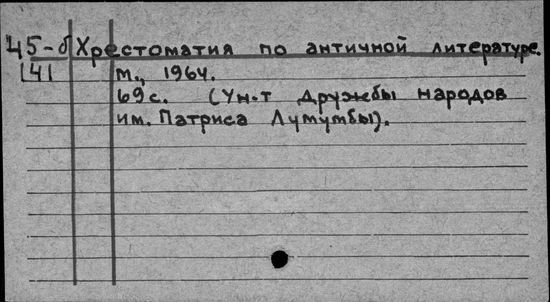 45-б Хрестоматия по античной литературе.
141 М., 1964.
69 с. (Ун-т Дружбы народов
им. Патриса Лумумбы).